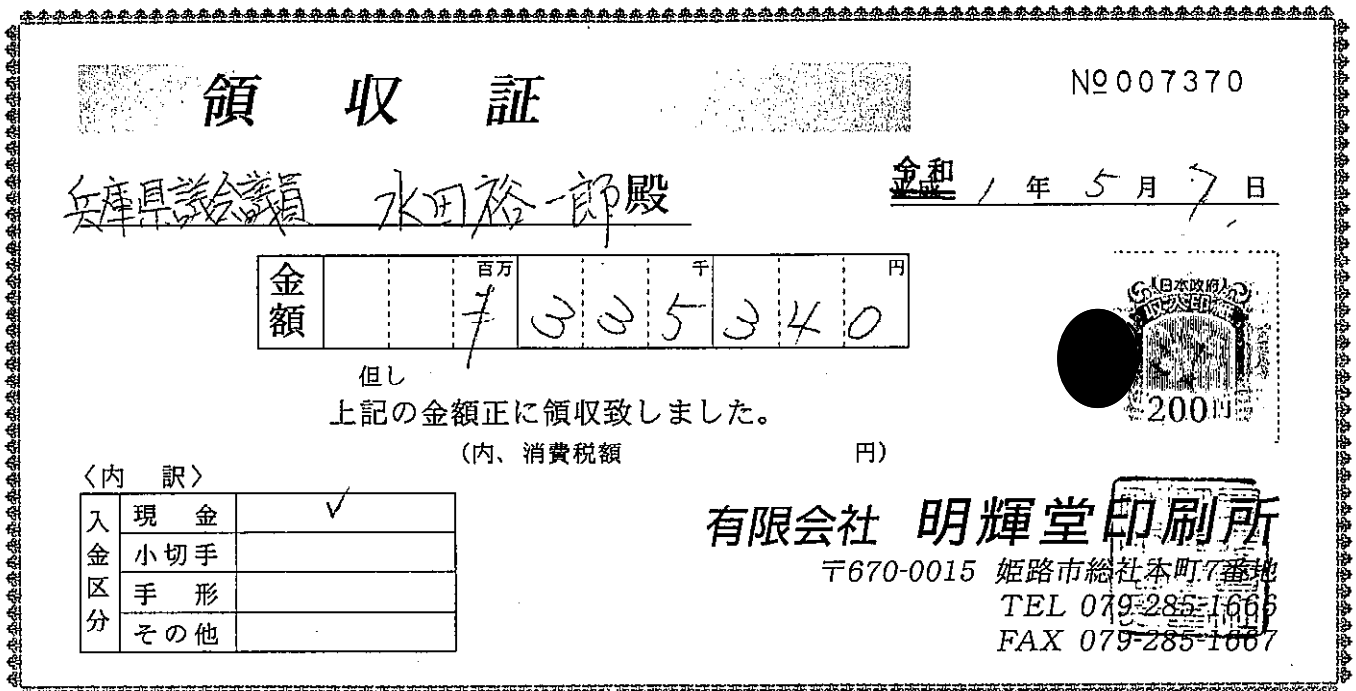 領収証
№007370
兵庫県議会議員 水田裕一郎殿
令和
平成 1年5月7日
金額 百万 千 円
¥335340
日本政府
収入印紙
200円
但し
上記の金額正に領収致しました。
(内、消費税額 円)
〈内 訳〉
入金区分
現 金 ✓
小切手
手 形
その他
有限会社 明輝堂印刷所
〒670-0015 姫路市総社本町7番地
TEL 079-285-1666
FAX 079-285-1667